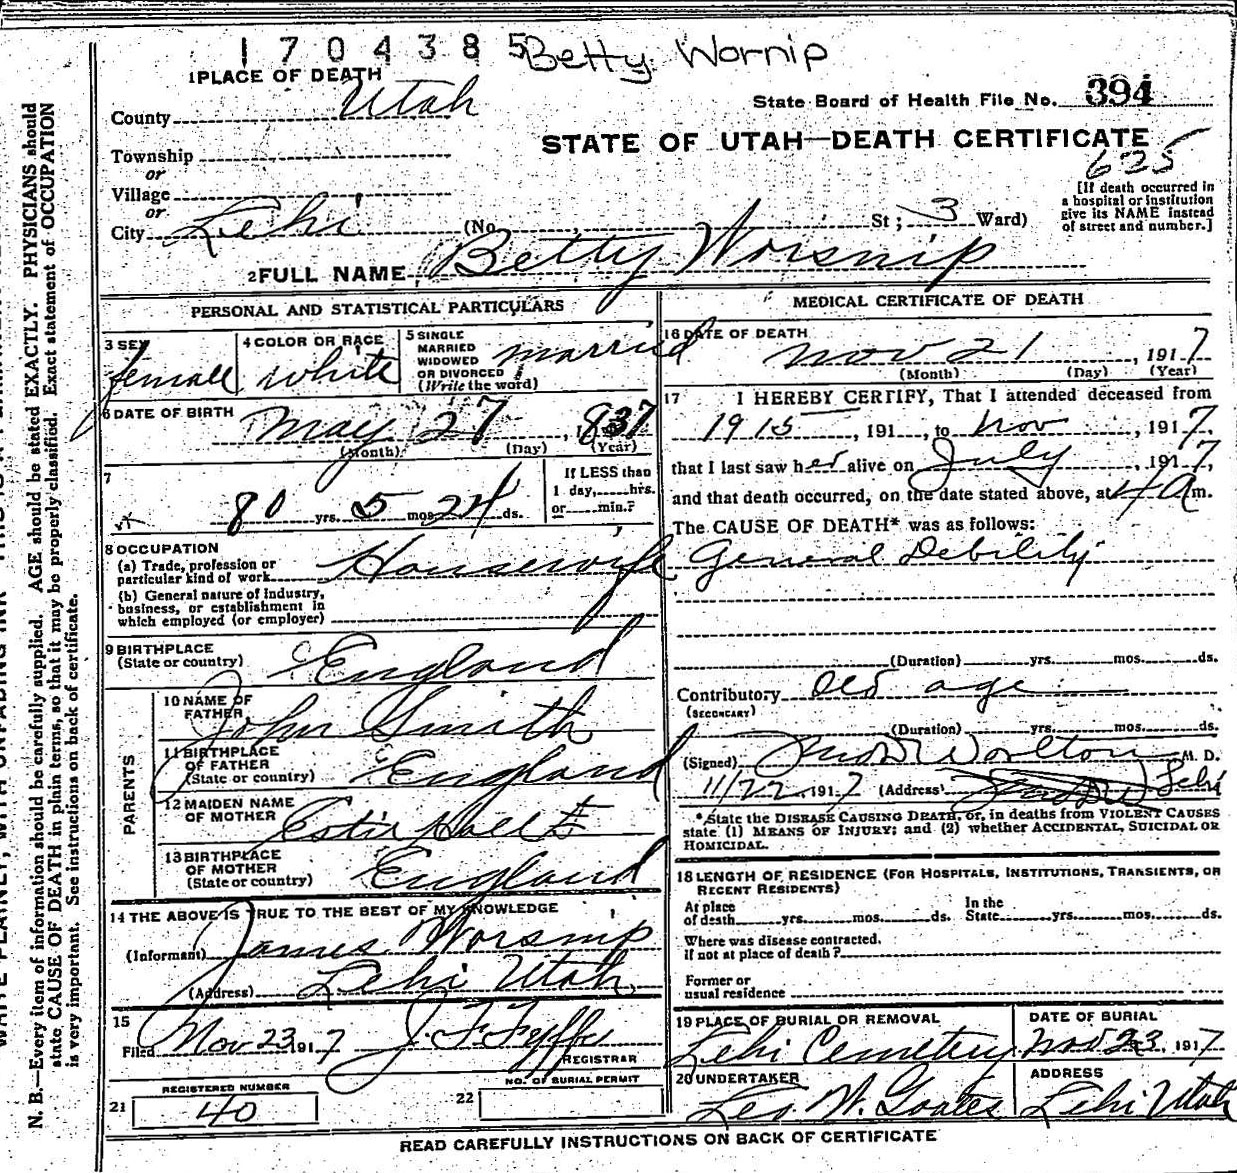 1 7 0 4 3 8 5 Betty Wornip
1 PLACE OF DEATH
County Utah
State Board of Health File No. 394
STATE OF UTAH—DEATH CERTIFICATE
625
Township
or
Village
or
City Lehi (No. St; 3 Ward)
[If death occurred in
a hospital or institution
give its NAME instead
of street and number.]
2 FULL NAME Betty Worsnip
PERSONAL AND STATISTICAL PARTICULARS
3 SEX female
4 COLOR OR RACE white
5 SINGLE
MARRIED
WIDOWED
OR DIVORCED
(Write the word) married
6 DATE OF BIRTH
May 27, 1837
(Month) (Day) (Year)
7
80 yrs. 5 mos. 24 ds.
If LESS than
1 day, hrs.
or min.?
8 OCCUPATION
(a) Trade, profession or
particular kind of work Housewife
(b) General nature of industry,
business, or establishment in
which employed (or employer)
9 BIRTHPLACE
(State or country) England
PARENTS
10 NAME OF
FATHER John Smith
11 BIRTHPLACE
OF FATHER
(State or country) England
12 MAIDEN NAME
OF MOTHER
13 BIRTHPLACE
OF MOTHER
(State or country) England
14 THE ABOVE IS TRUE TO THE BEST OF MY KNOWLEDGE
(Informant) James Worsnip
(Address) Lehi Utah
15
Filed Nov 23 1917 J. F. Fyffe
REGISTRAR
REGISTERED NUMBER
21 40
NO. OF BURIAL PERMIT
22
MEDICAL CERTIFICATE OF DEATH
16 DATE OF DEATH
Nov 21, 1917
(Month) (Day) (Year)
17 I HEREBY CERTIFY, That I attended deceased from
1915, 191 , to Nov, 1917,
that I last saw her alive on July, 1917,
and that death occurred, on the date stated above, at 4 Am.
The CAUSE OF DEATH* was as follows:
General Debility
(Duration) yrs. mos. ds.
Contributory Old age
(SECONDARY)
(Duration) yrs. mos. ds.
(Signed) Worlton M. D.
11/22, 1917 (Address) Lehi
*State the DISEASE CAUSING DEATH, or, in deaths from VIOLENT CAUSES
state (1) MEANS OF INJURY; and (2) whether ACCIDENTAL, SUICIDAL OR
HOMICIDAL.
18 LENGTH OF RESIDENCE (FOR HOSPITALS, INSTITUTIONS, TRANSIENTS, OR
RECENT RESIDENTS)
At place
of death yrs. mos. ds.
In the
State yrs. mos. ds.
Where was disease contracted,
if not at place of death?
Former or
usual residence
19 PLACE OF BURIAL OR REMOVAL
Lehi Cemetery
DATE OF BURIAL
Nov 23, 1917
20 UNDERTAKER
Leo W. Goates
ADDRESS
Lehi Utah
READ CAREFULLY INSTRUCTIONS ON BACK OF CERTIFICATE
N. B.—Every item of information should be carefully supplied. AGE should be stated EXACTLY. PHYSICIANS should
state CAUSE OF DEATH in plain terms, so that it may be properly classified. Exact statement of OCCUPATION
is very important. See instructions on back of certificate.